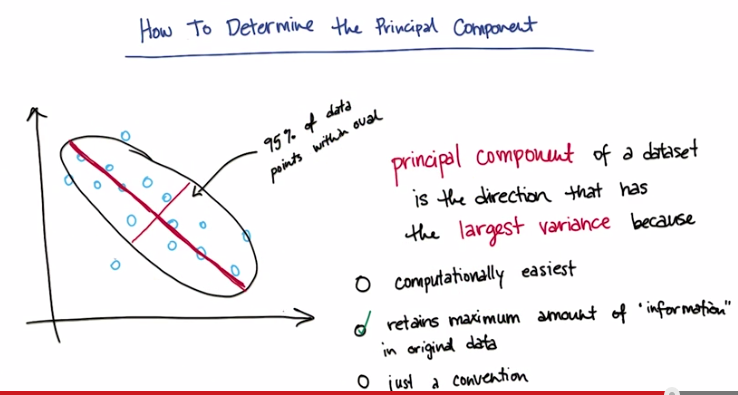 How To Determine the Principal Component
95% of data
points within oval
principal component of a dataset
is the direction that has
the largest variance because
computationally easiest
retains maximum amount of "information"
in original data
just a convention